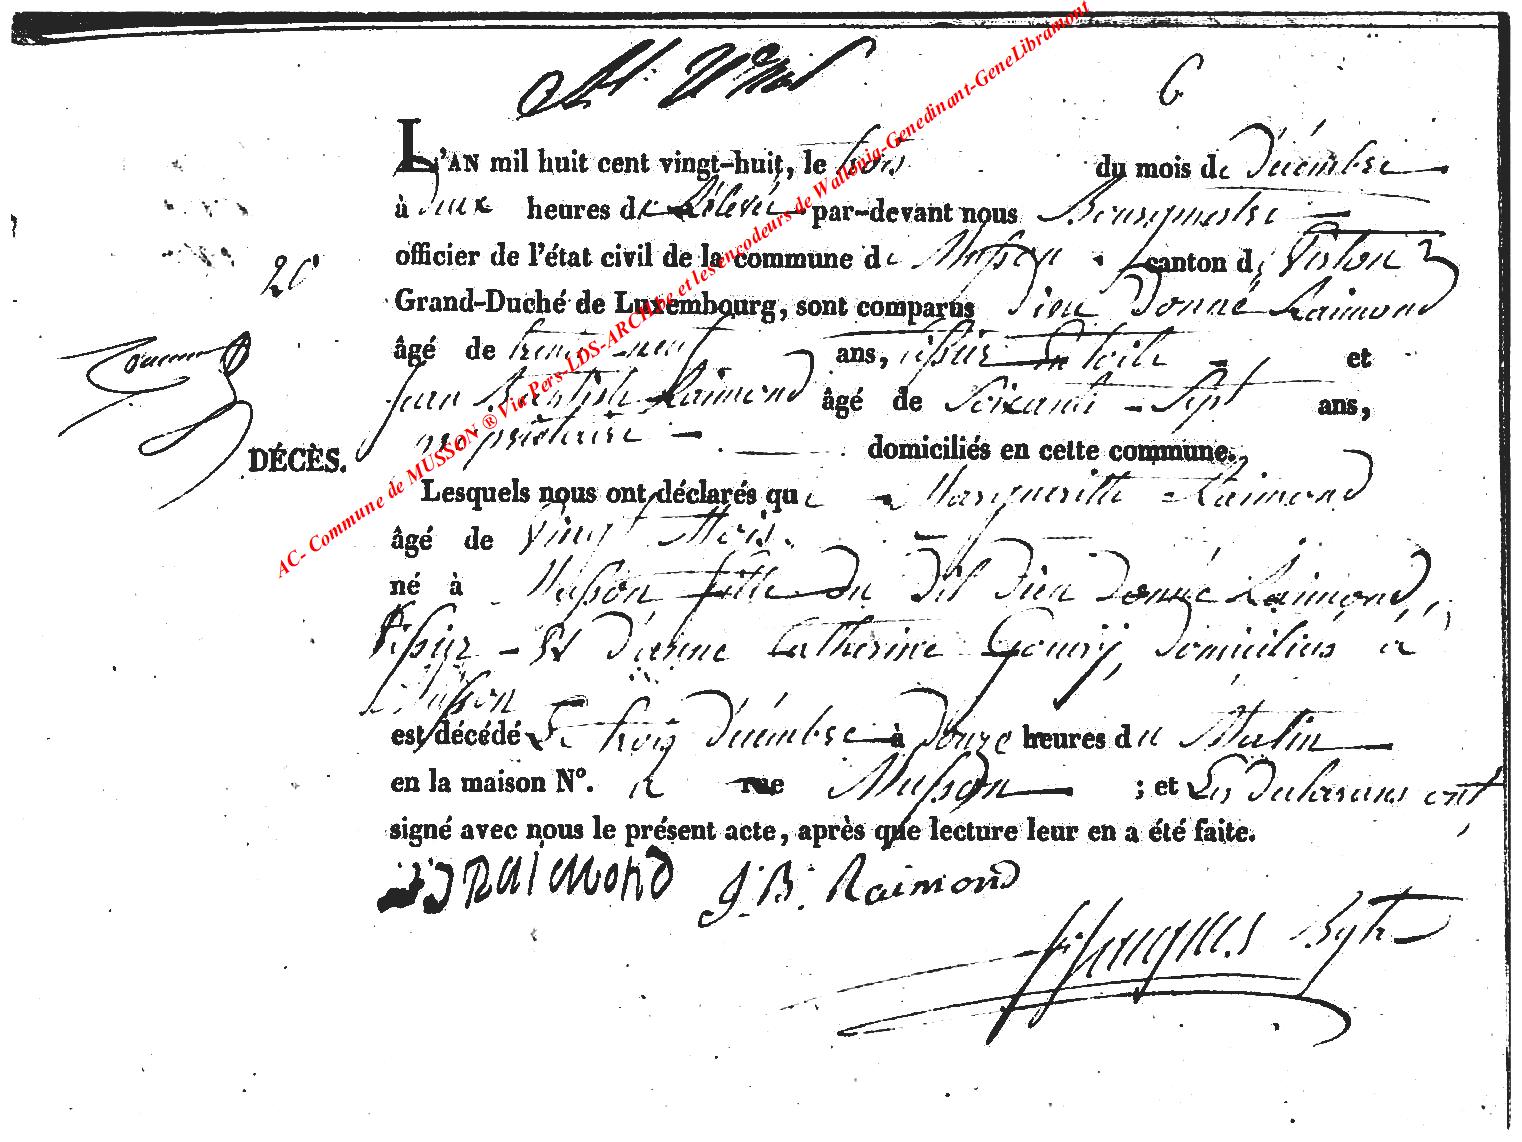 6
L'AN mil huit cent vingt-huit, le trois du mois de Décembre
à Deux heures de Rélevée par-devant nous Bourgmestre
officier de l'état civil de la commune de Musson canton de Virton
20
Grand-Duché de Luxembourg, sont comparus Dieu Donné Raimond
âgé de trente neuf ans, tissier En toile et
Jean Baptiste Raimond âgé de Soixante - Sept ans,
propriétaire domiciliés en cette commune.
DÉCÈS.
Lesquels nous ont déclarés que Margueritte Raimond
âgé de Vingt Mois.
né à Musson fille du dit Dieu Donné Raimond,
tissier - Et d'anne Catherine Goury, Domiciliés à
Musson
est décédé Le trois Décembre à Douze heures du Matin
en la maison N°. à rue Musson ; et Les declarans ont
signé avec nous le présent acte, après que lecture leur en a été faite.
DD RAIMOND J. B. Raimond
AC- Commune de MUSSON ® Via Pers-LDS-ARCH.be et les encodeurs de Wallonia-Genedinant-GeneLibramont